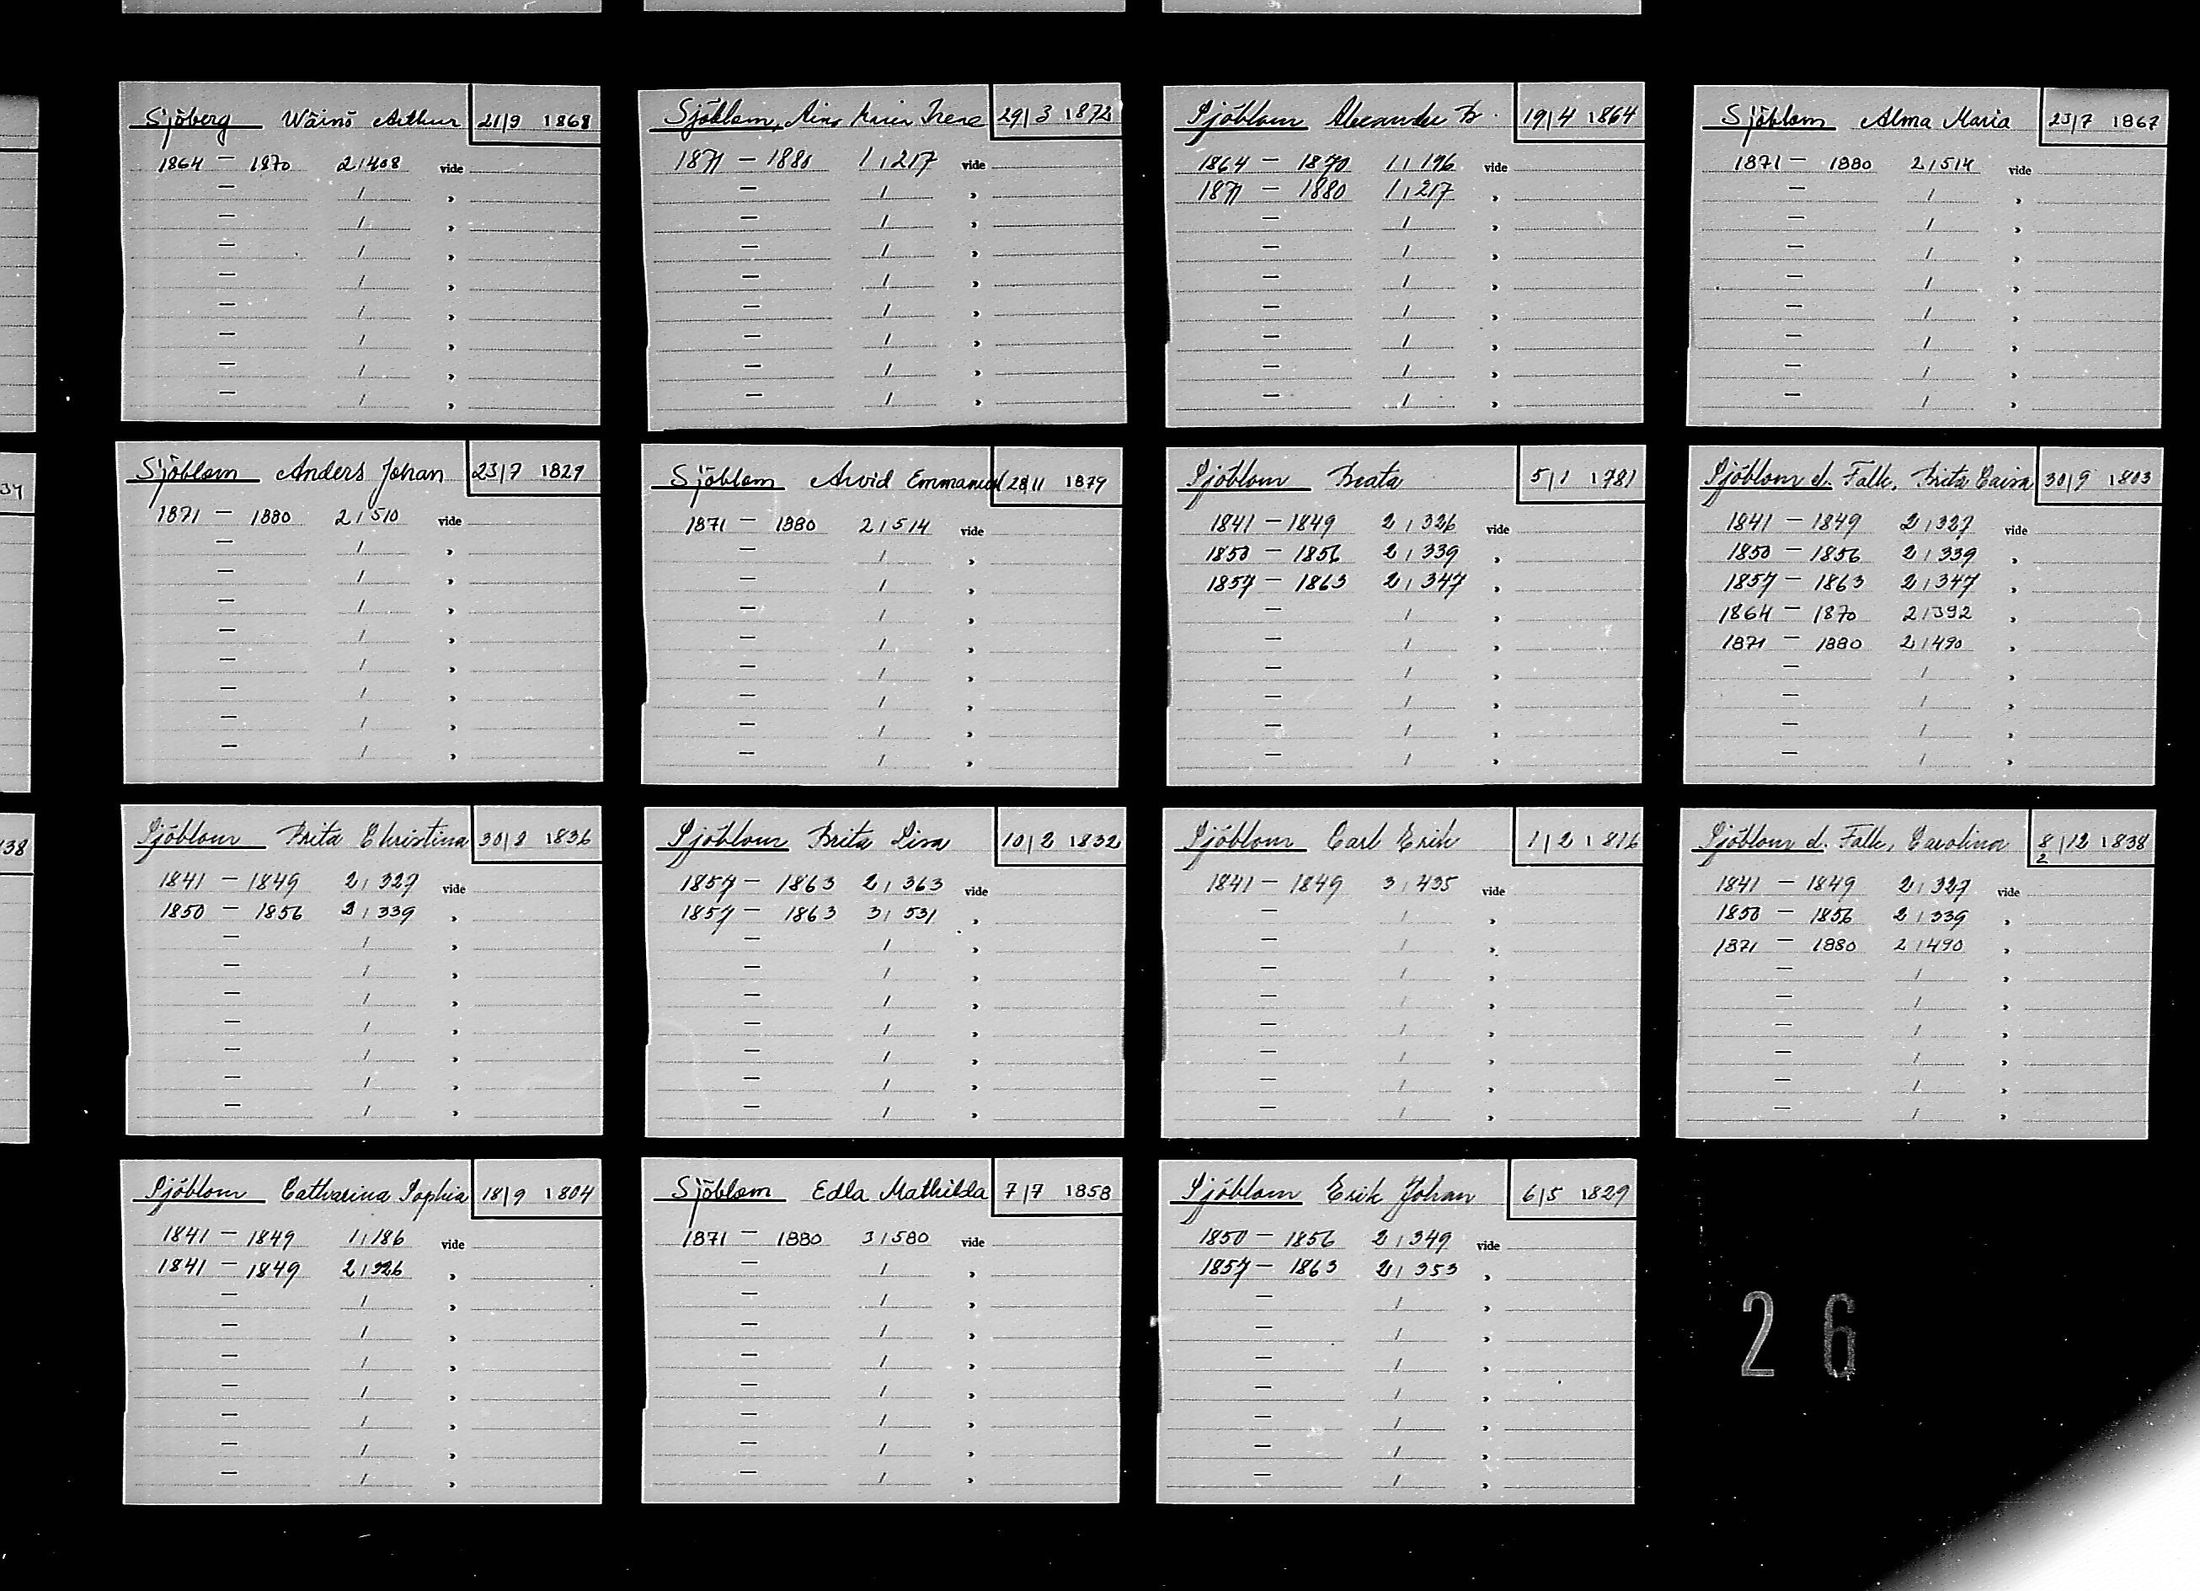 Sjöberg Wäinö Arthur 21/9 1868
1864 – 1870 2/408 vide
Sjöblom, Aino Irene 29/3 1872
1871 – 1880 1/217 vide
Sjöblom Alexander B. 19/4 1864
1864 – 1870 1/196 vide
1871 – 1880 1/217 "
Sjöblom Alma Maria 23/7 1867
1871 – 1880 2/514 vide
Sjöblom Anders Johan 23/7 1829
1871 – 1880 2/510 vide
Sjöblom Arvid Emmanuel 28/11 1879
1871 – 1880 2/514 vide
Sjöblom Beata 5/1 1781
1841 – 1849 2/326 vide
1850 – 1856 2/339 "
1857 – 1863 2/347 "
Sjöblom d. Falk, Brita Caisa 30/9 1803
1841 – 1849 2/327 vide
1850 – 1856 2/339 "
1857 – 1863 2/347 "
1864 – 1870 2/392 "
1871 – 1880 2/490 "
Sjöblom Brita Christina 30/8 1836
1841 – 1849 2/327 vide
1850 – 1856 2/339 "
Sjöblom Brita Lisa 10/2 1832
1857 – 1863 2/363 vide
1857 – 1863 3/531 "
Sjöblom Carl Erik 1/2 1816
1841 – 1849 3/435 vide
Sjöblom d. Falk, Carolina 8/12 1838
2
1841 – 1849 2/327 vide
1850 – 1856 2/339 "
1871 – 1880 2/490 "
Sjöblom Catharina Sophia 18/9 1804
1841 – 1849 1/186 vide
1841 – 1849 2/326 "
Sjöblom Edla Mathilda 7/7 1858
1871 – 1880 3/580 vide
Sjöblom Erik Johan 6/5 1829
1850 – 1856 2/349 vide
1857 – 1863 2/353 "
26